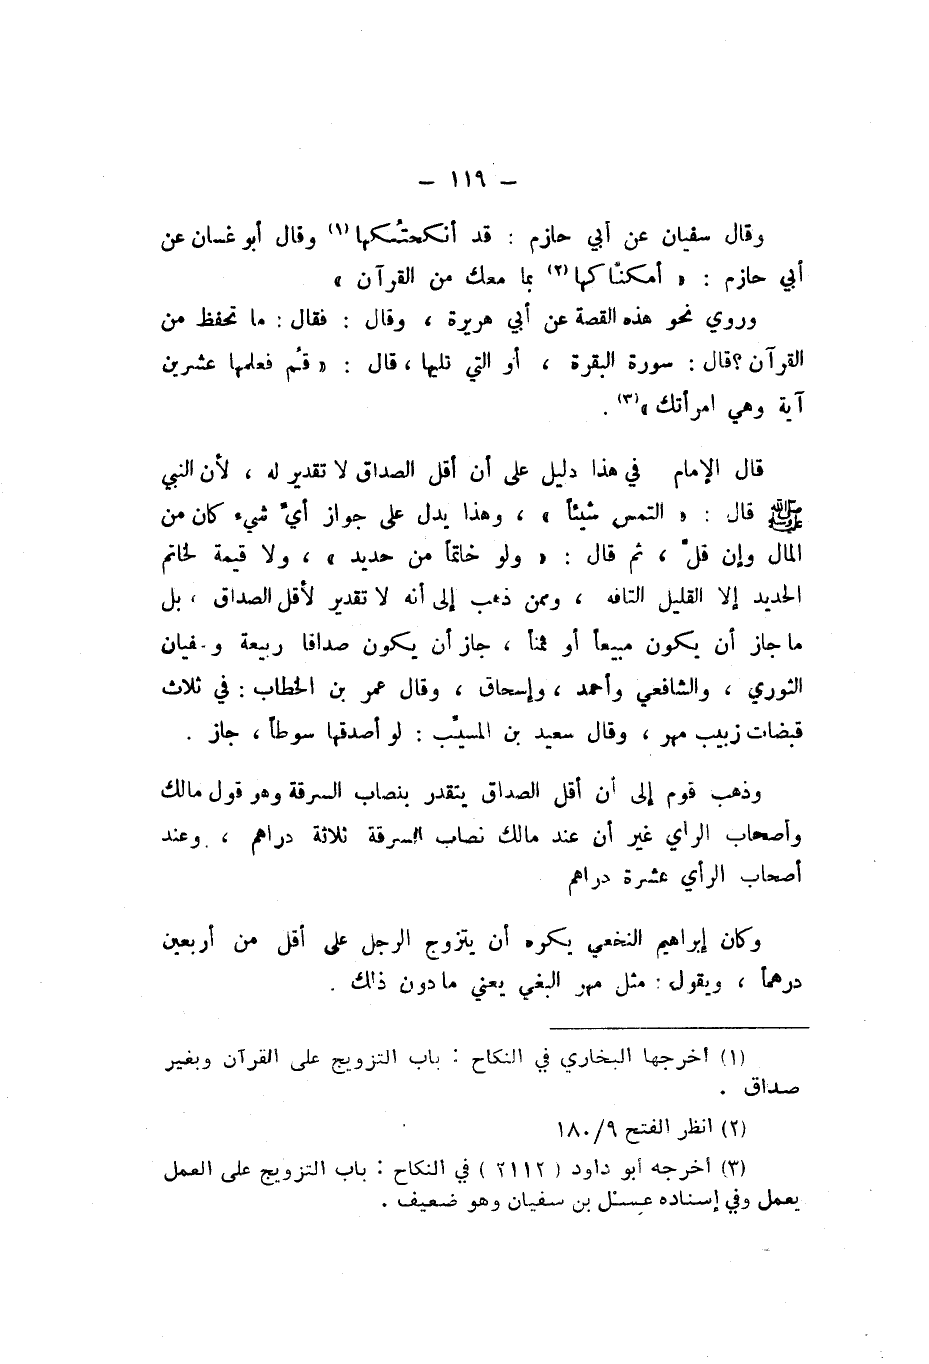 — ١١٩ —
وقال سفيان عن أبي حازم : قد أنكحتُكها (١) وقال أبو غسان عن
أبي حازم : « أمكنّاكها (٢) بما معك من القرآن »
وروي نحو هذه القصة عن أبي هريرة ، وقال : فقال : ما تحفظ من
القرآن ؟ قال : سورة البقرة ، أو التي تليها ، قال : « قُم فعلمها عشرين
آية وهي امرأتك » (٣) .
قال الإمام في هذا دليل على أن أقل الصداق لا تقدير له ، لأن النبي
ﷺ قال : « التمس شيئاً » ، وهذا يدل على جواز أيّ شيء كان من
المال وإن قلّ ، ثم قال : « ولو خاتماً من حديد » ، ولا قيمة لخاتم
الحديد إلا القليل التافه ، وممن ذهب إلى أنه لا تقدير لأقل الصداق ، بل
ما جاز أن يكون مبيعاً أو ثمناً ، جاز أن يكون صداقا ربيعة و سفيان
الثوري ، والشافعي وأحمد ، وإسحاق ، وقال عمر بن الخطاب : في ثلاث
قبضات زبيب مهر ، وقال سعيد بن المسيّب : لو أصدقها سوطاً ، جاز .
وذهب قوم إلى أن أقل الصداق يتقدر بنصاب السرقة وهو قول مالك
وأصحاب الرأي غير أن عند مالك نصاب السرقة ثلاثة دراهم ، وعند
أصحاب الرأي عشرة دراهم
وكان إبراهيم النخعي يكره أن يتزوج الرجل على أقل من أربعين
درهماً ، ويقول : مثل مهر البغي يعني ما دون ذلك .
(١) أخرجها البخاري في النكاح : باب التزويج على القرآن وبغير
صداق .
(٢) انظر الفتح ٩/١٨٠
(٣) أخرجه أبو داود ( ٢١١٢ ) في النكاح : باب التزويج على العمل
يعمل وفي إسناده عسل بن سفيان وهو ضعيف .